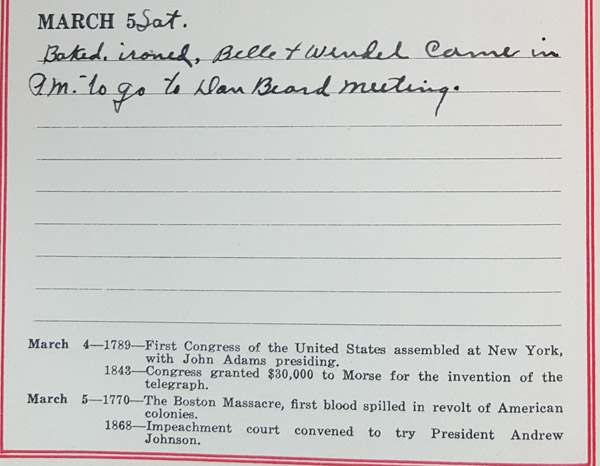 MARCH 5 Sat.
Baked, ironed, Belle + Wendel Came in
P.M. to go to Dan Beard meeting.
March 4—1789—First Congress of the United States assembled at New York,
with John Adams presiding.
1843—Congress granted $30,000 to Morse for the invention of the
telegraph.
March 5—1770—The Boston Massacre, first blood spilled in revolt of American
colonies.
1868—Impeachment court convened to try President Andrew
Johnson.